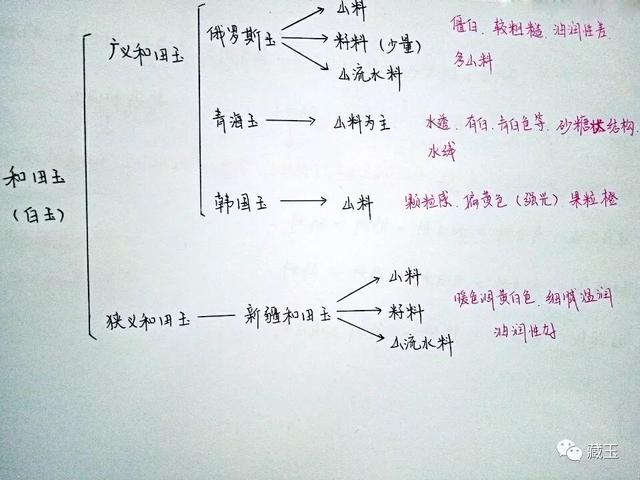 和田玉
(白玉)
广义和田玉
俄罗斯玉
山料
籽料(少量)
山流水料
僵白、较粗糙、油润性差
多山料
青海玉
山料为主
水透、有白、青白色等、砂糖状结构、
水线
韩国玉
山料
颗粒感、偏黄色(强光)果粒橙
狭义和田玉
新疆和田玉
山料
籽料
山流水料
暖色调黄白色、细腻温润
油润性好
藏玉